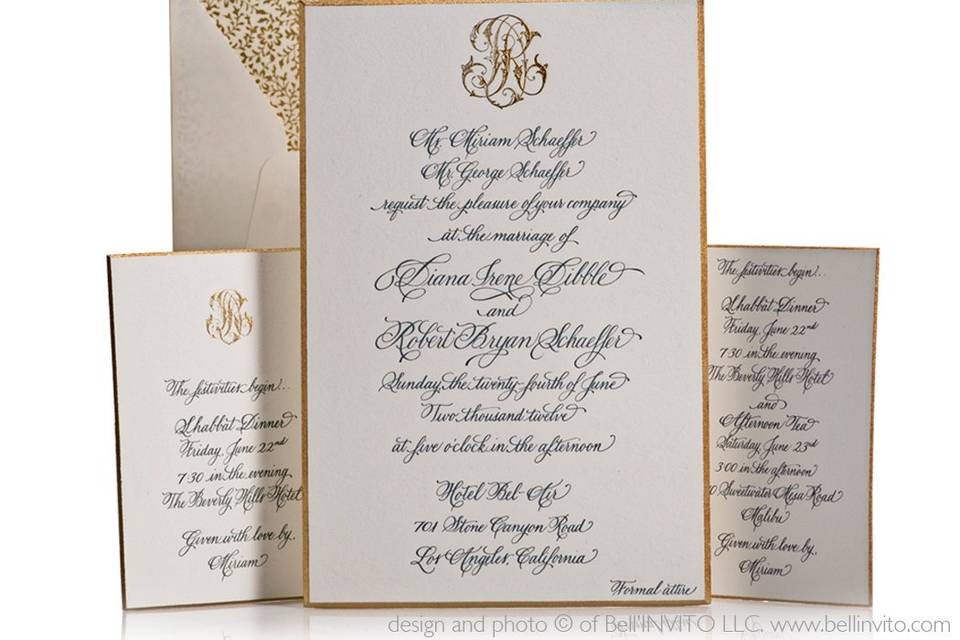 Ms. Miriam Schaeffer
Mr. George Schaeffer
request the pleasure of your company
at the marriage of
Diana Irene Dibble
and
Robert Bryan Schaeffer
Sunday, the twenty-fourth of June
Two thousand twelve
at five o'clock in the afternoon
Hotel Bel-Air
701 Stone Canyon Road
Los Angeles, California
Formal attire
The festivities begin!...
Shabbat Dinner
Friday, June 22nd
7:30 in the evening
The Beverly Hills Hotel
Given with love by,
Miriam
The festivities begin!..
Shabbat Dinner
Friday, June 22nd
7:30 in the evening
The Beverly Hills Hotel
and
Afternoon Tea
Saturday, June 23rd
3:00 in the afternoon
0 Sweetwater Mesa Road
Malibu
Given with love by,
Miriam
design and photo © of Bell'INVITO LLC. www.bellinvito.com